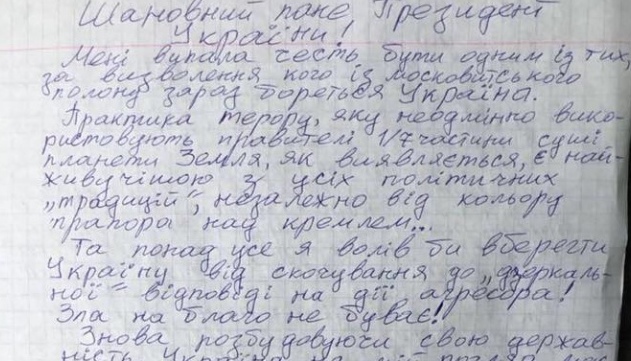 Шановний пане Президент
України!
Мені випала честь бути одним із тих,
за визволення кого із московитського
полону зараз бореться Україна.
Практика терору, яку неодмінно вико-
ристовують правителі 1/7 частини суші
планети Земля, як виявляється, є най-
живучішою з усіх політичних
„традицій", незалежно від кольору
прапора над кремлем...
Та понад усе я волів би вберегти
Україну від скочування до „дзеркаль-
ної" відповіді на дії агресора!
Зла на благо не буває!
Знова розбудовуючи свою держав-
ність Україна на